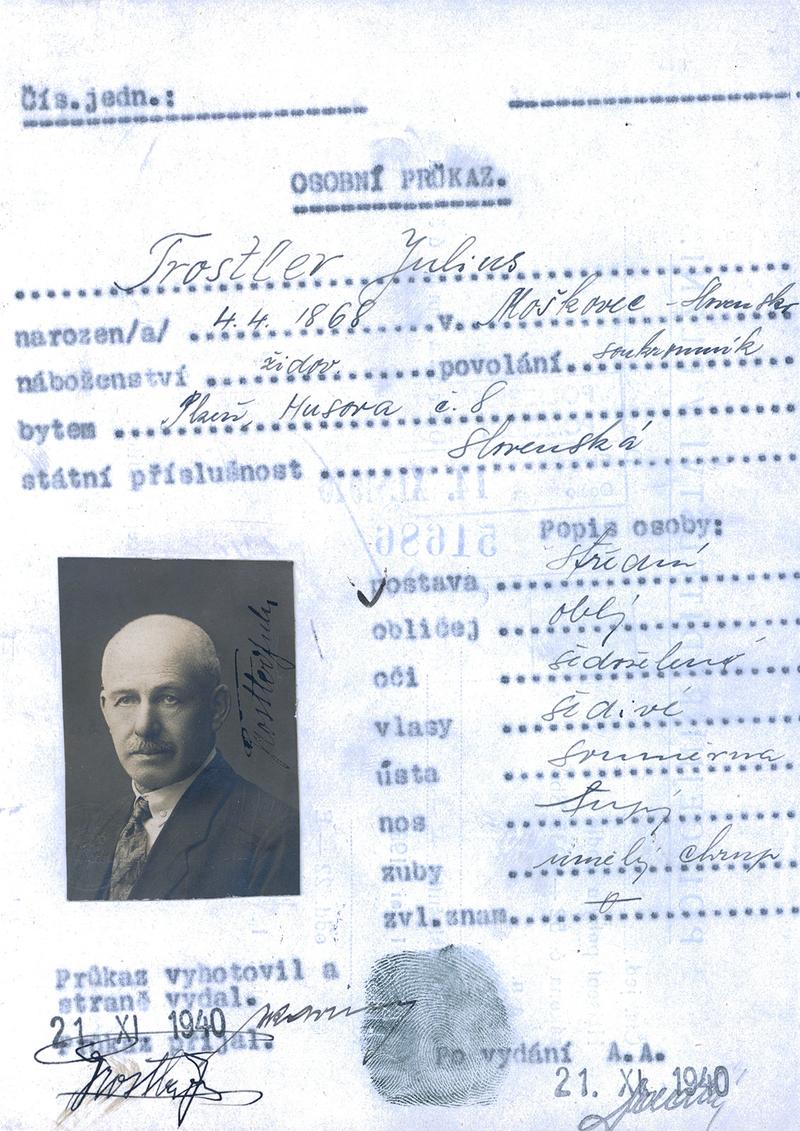 Čís.jedn.:
OSOBNÍ PRŮKAZ.
Trostler Julius
narozen/a/ 4.4. 1868 v. Moškovec - Slovensko
náboženství židov. povolání soukromník
bytem Plzeň, Husova č. 8
státní příslušnost slovenská
51686
Popis osoby:
postava střední
obličej oblý
oči šedozelené
vlasy šedivé
ústa souměrná
nos tupý
zuby umělý chrup
zvl.znam.
Trostler Julius
Průkaz vyhotovil a
straně vydal.
21 XI 1940
Průkaz přijal.
Trostler J
Po vydání A.A.
21. XI. 1940